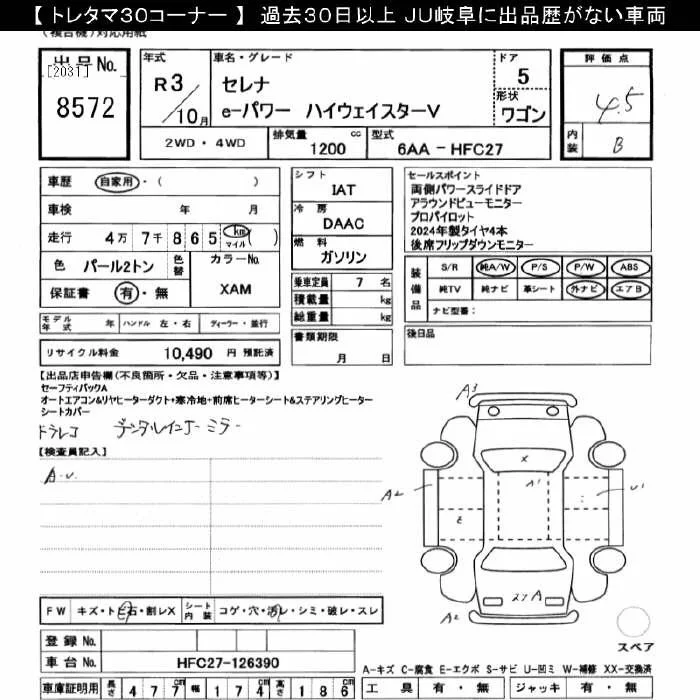 【 トレタマ30コーナー 】 過去30日以上 JU岐阜に出品歴がない車両
(複合機)対応用紙
出品No.
[2031]
8572
年式
R3
10月
車名・グレード
セレナ
e-パワー ハイウェイスターV
ドア
5
形状
ワゴン
2WD・4WD
排気量 cc
1200
型式
6AA - HFC27
評価点
4.5
内装
B
車歴 自家用・( )
車検 年 月
走行 4万 7千 865 km マイル ( )
色 パール2トン
色替
カラーNo.
XAM
保証書 有・無
シフト
IAT
冷房
DAAC
燃料
ガソリン
乗車定員 7 名
積載量 kg
総重量 kg
書類期限
月 日
セールスポイント
両側パワースライドドア
アラウンドビューモニター
プロパイロット
2024年製タイヤ4本
後席フリップダウンモニター
装備品
S/R 純A/W P/S P/W ABS
純TV 純ナビ 革シート 外ナビ エアB
ナビ型番:
後日品
モデル年式 年 ハンドル 左・右 ディーラー・並行
リサイクル料金 10,490 円 預託済
【出品店申告欄(不良箇所・欠品・注意事項等)】
セーフティパックA
オートエアコン&リヤヒーターダクト+寒冷地+前席ヒーターシート&ステアリングヒーター
シートカバー
ドラレコ デジタルインナーミラー
【検査員記入】
A.U.
A3
X
A1
A2
U1
E
A2
スペア
FW キズ・ト石・割レX
シート内装 コゲ・穴・汚レ・シミ・破レ・スレ
登録No.
車台No. HFC27-126390
A-キズ C-腐食 E-エクボ S-サビ U-凹ミ W-補修 XX-交換済
車庫証明用 長さ 477cm 幅 174cm 高さ 186cm
工具 有・無 ジャッキ 有・無